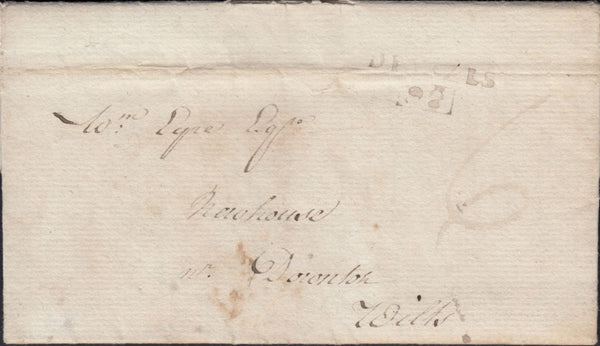 DEVIZES
98
Wm Eyre Esqr
Newhouse
nr. Downton
Wilts
6